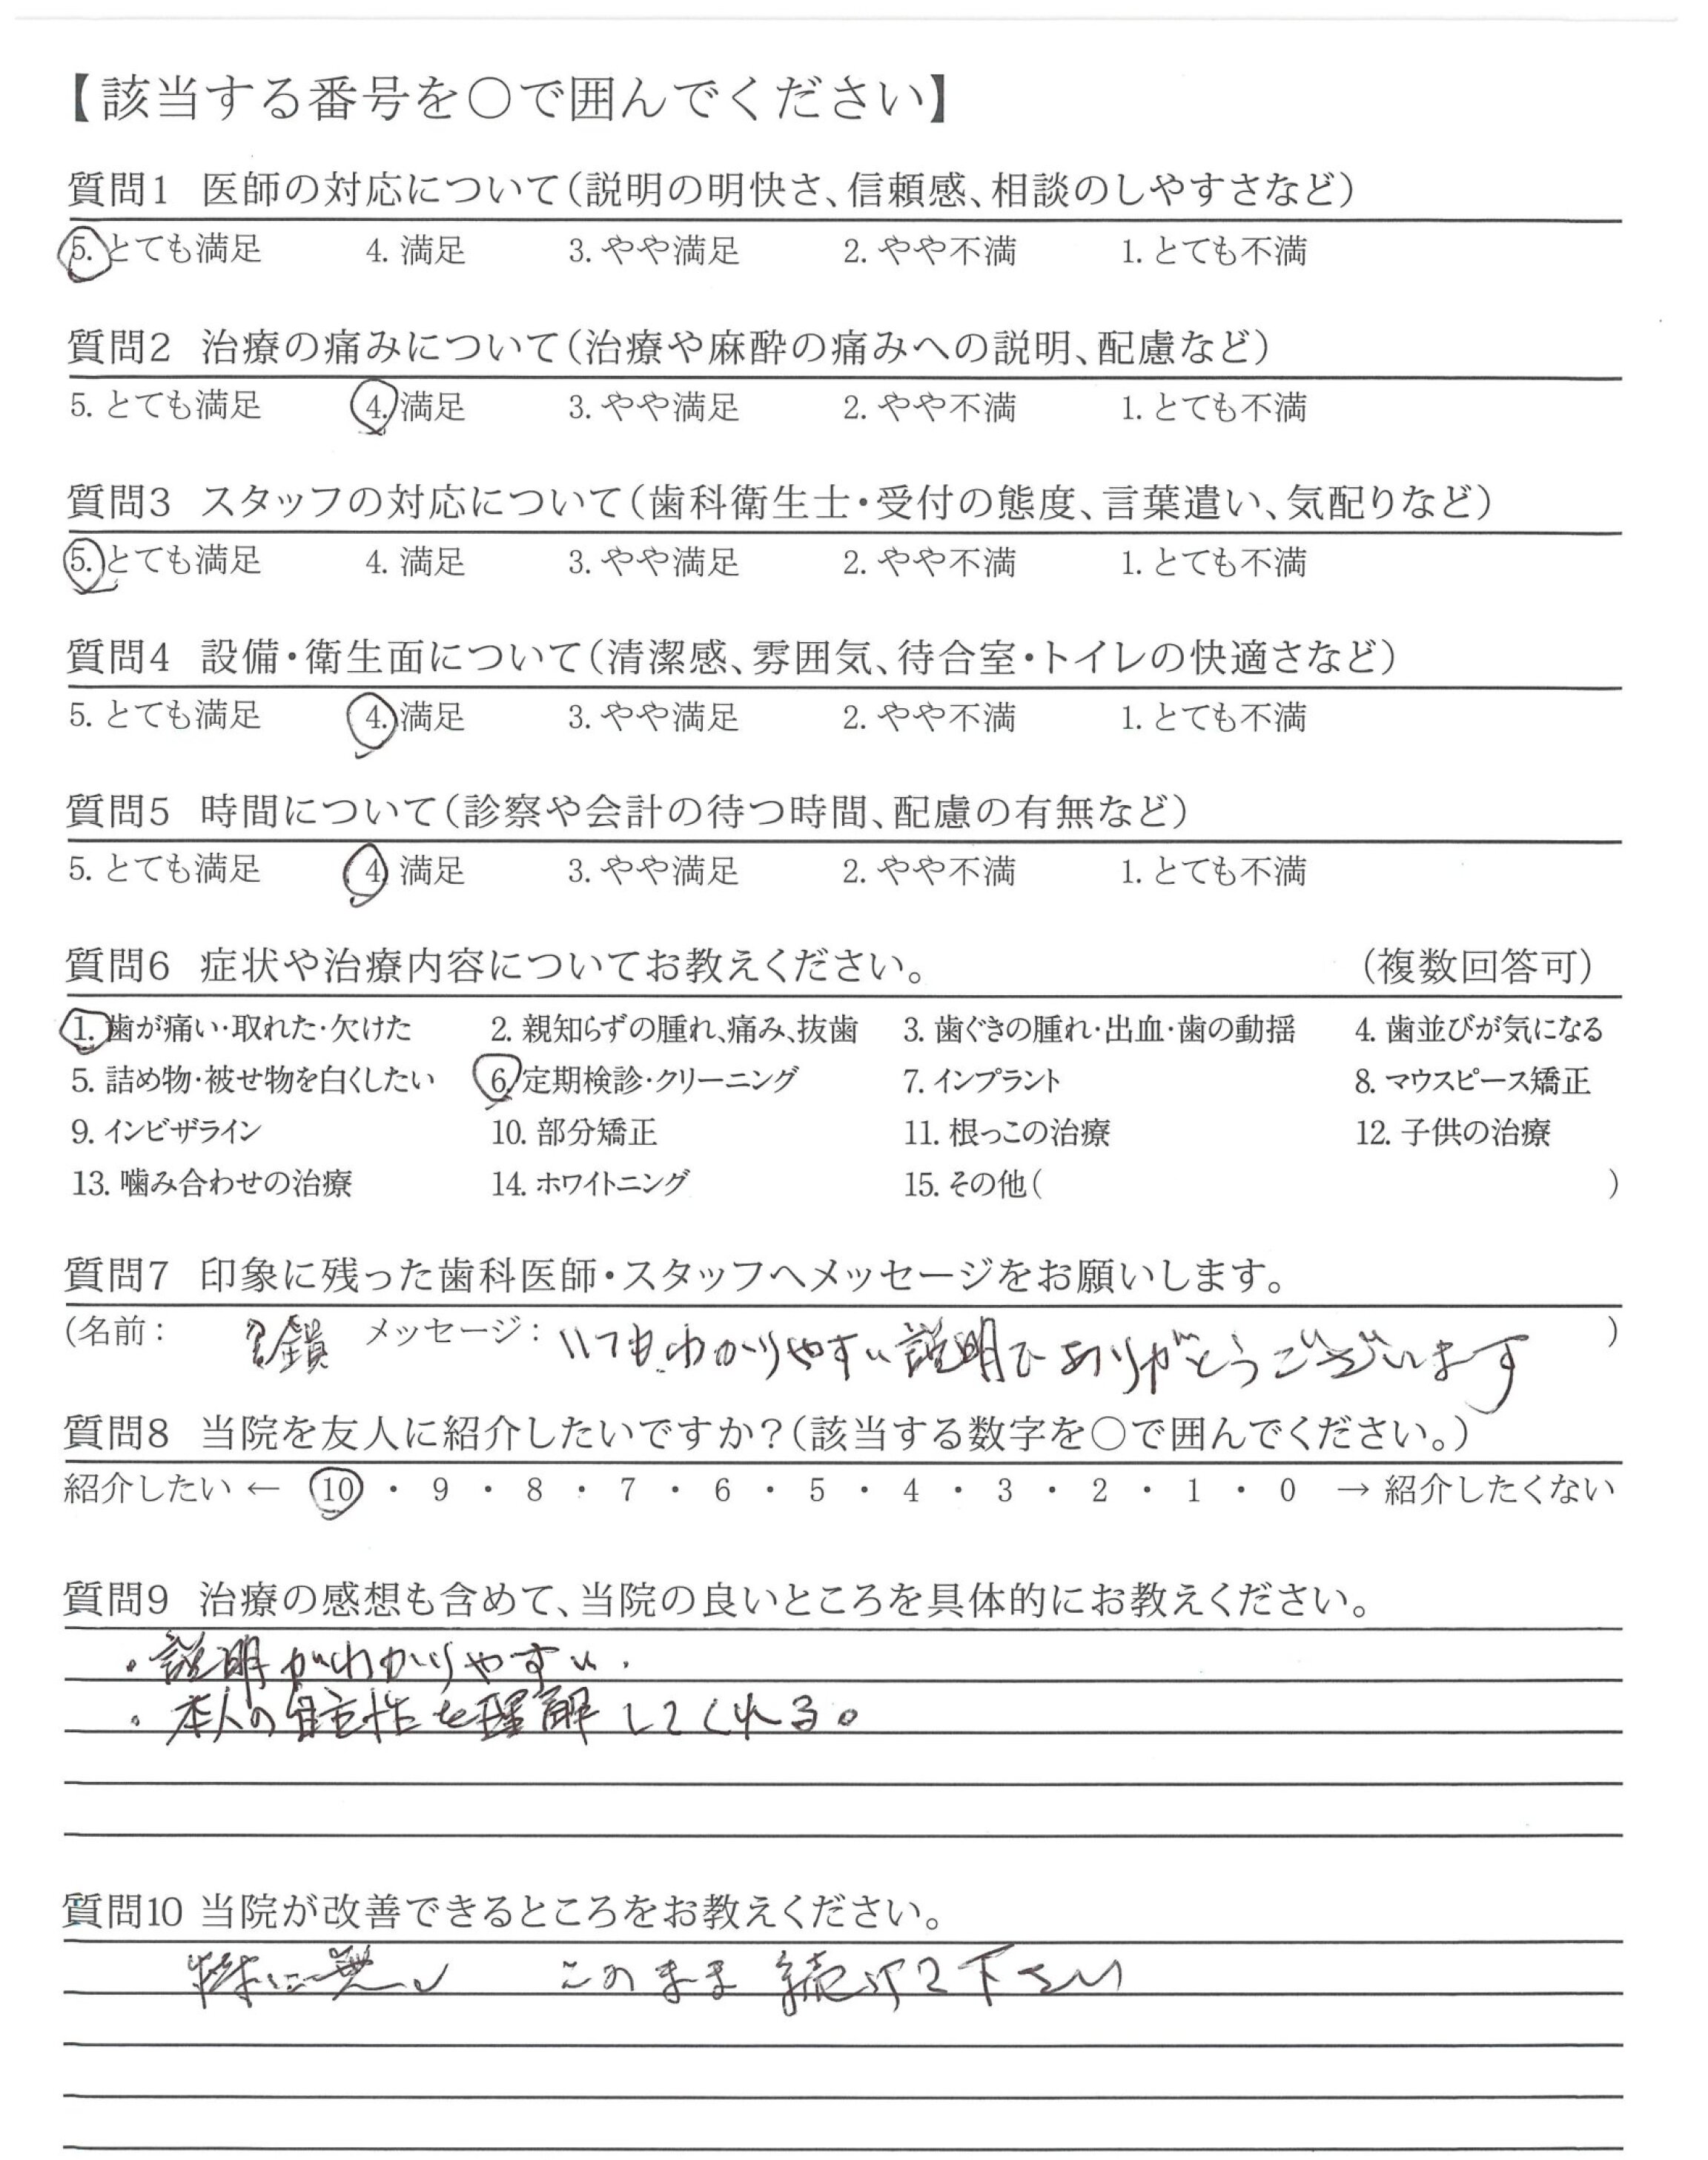 【該当する番号を○で囲んでください】
質問1 医師の対応について（説明の明快さ、信頼感、相談のしやすさなど）
5. とても満足 4. 満足 3. やや満足 2. やや不満 1. とても不満
質問2 治療の痛みについて（治療や麻酔の痛みへの説明、配慮など）
5. とても満足 4. 満足 3. やや満足 2. やや不満 1. とても不満
質問3 スタッフの対応について（歯科衛生士・受付の態度、言葉遣い、気配りなど）
5. とても満足 4. 満足 3. やや満足 2. やや不満 1. とても不満
質問4 設備・衛生面について（清潔感、雰囲気、待合室・トイレの快適さなど）
5. とても満足 4. 満足 3. やや満足 2. やや不満 1. とても不満
質問5 時間について（診察や会計の待つ時間、配慮の有無など）
5. とても満足 4. 満足 3. やや満足 2. やや不満 1. とても不満
質問6 症状や治療内容についてお教えください。 （複数回答可）
1. 歯が痛い・取れた・欠けた 2. 親知らずの腫れ、痛み、抜歯 3. 歯ぐきの腫れ・出血・歯の動揺 4. 歯並びが気になる
5. 詰め物・被せ物を白くしたい 6. 定期検診・クリーニング 7. インプラント 8. マウスピース矯正
9. インビザライン 10. 部分矯正 11. 根っこの治療 12. 子供の治療
13. 噛み合わせの治療 14. ホワイトニング 15. その他（ ）
質問7 印象に残った歯科医師・スタッフへメッセージをお願いします。
（名前： メッセージ： いつもわかりやすい説明でありがとうございます ）
質問8 当院を友人に紹介したいですか？（該当する数字を○で囲んでください。）
紹介したい ← 10 ・ 9 ・ 8 ・ 7 ・ 6 ・ 5 ・ 4 ・ 3 ・ 2 ・ 1 ・ 0 → 紹介したくない
質問9 治療の感想も含めて、当院の良いところを具体的にお教えください。
・説明がわかりやすい.
・本人の自主性を理解してくれる。
質問10 当院が改善できるところをお教えください。
特に無し このまま続けて下さい